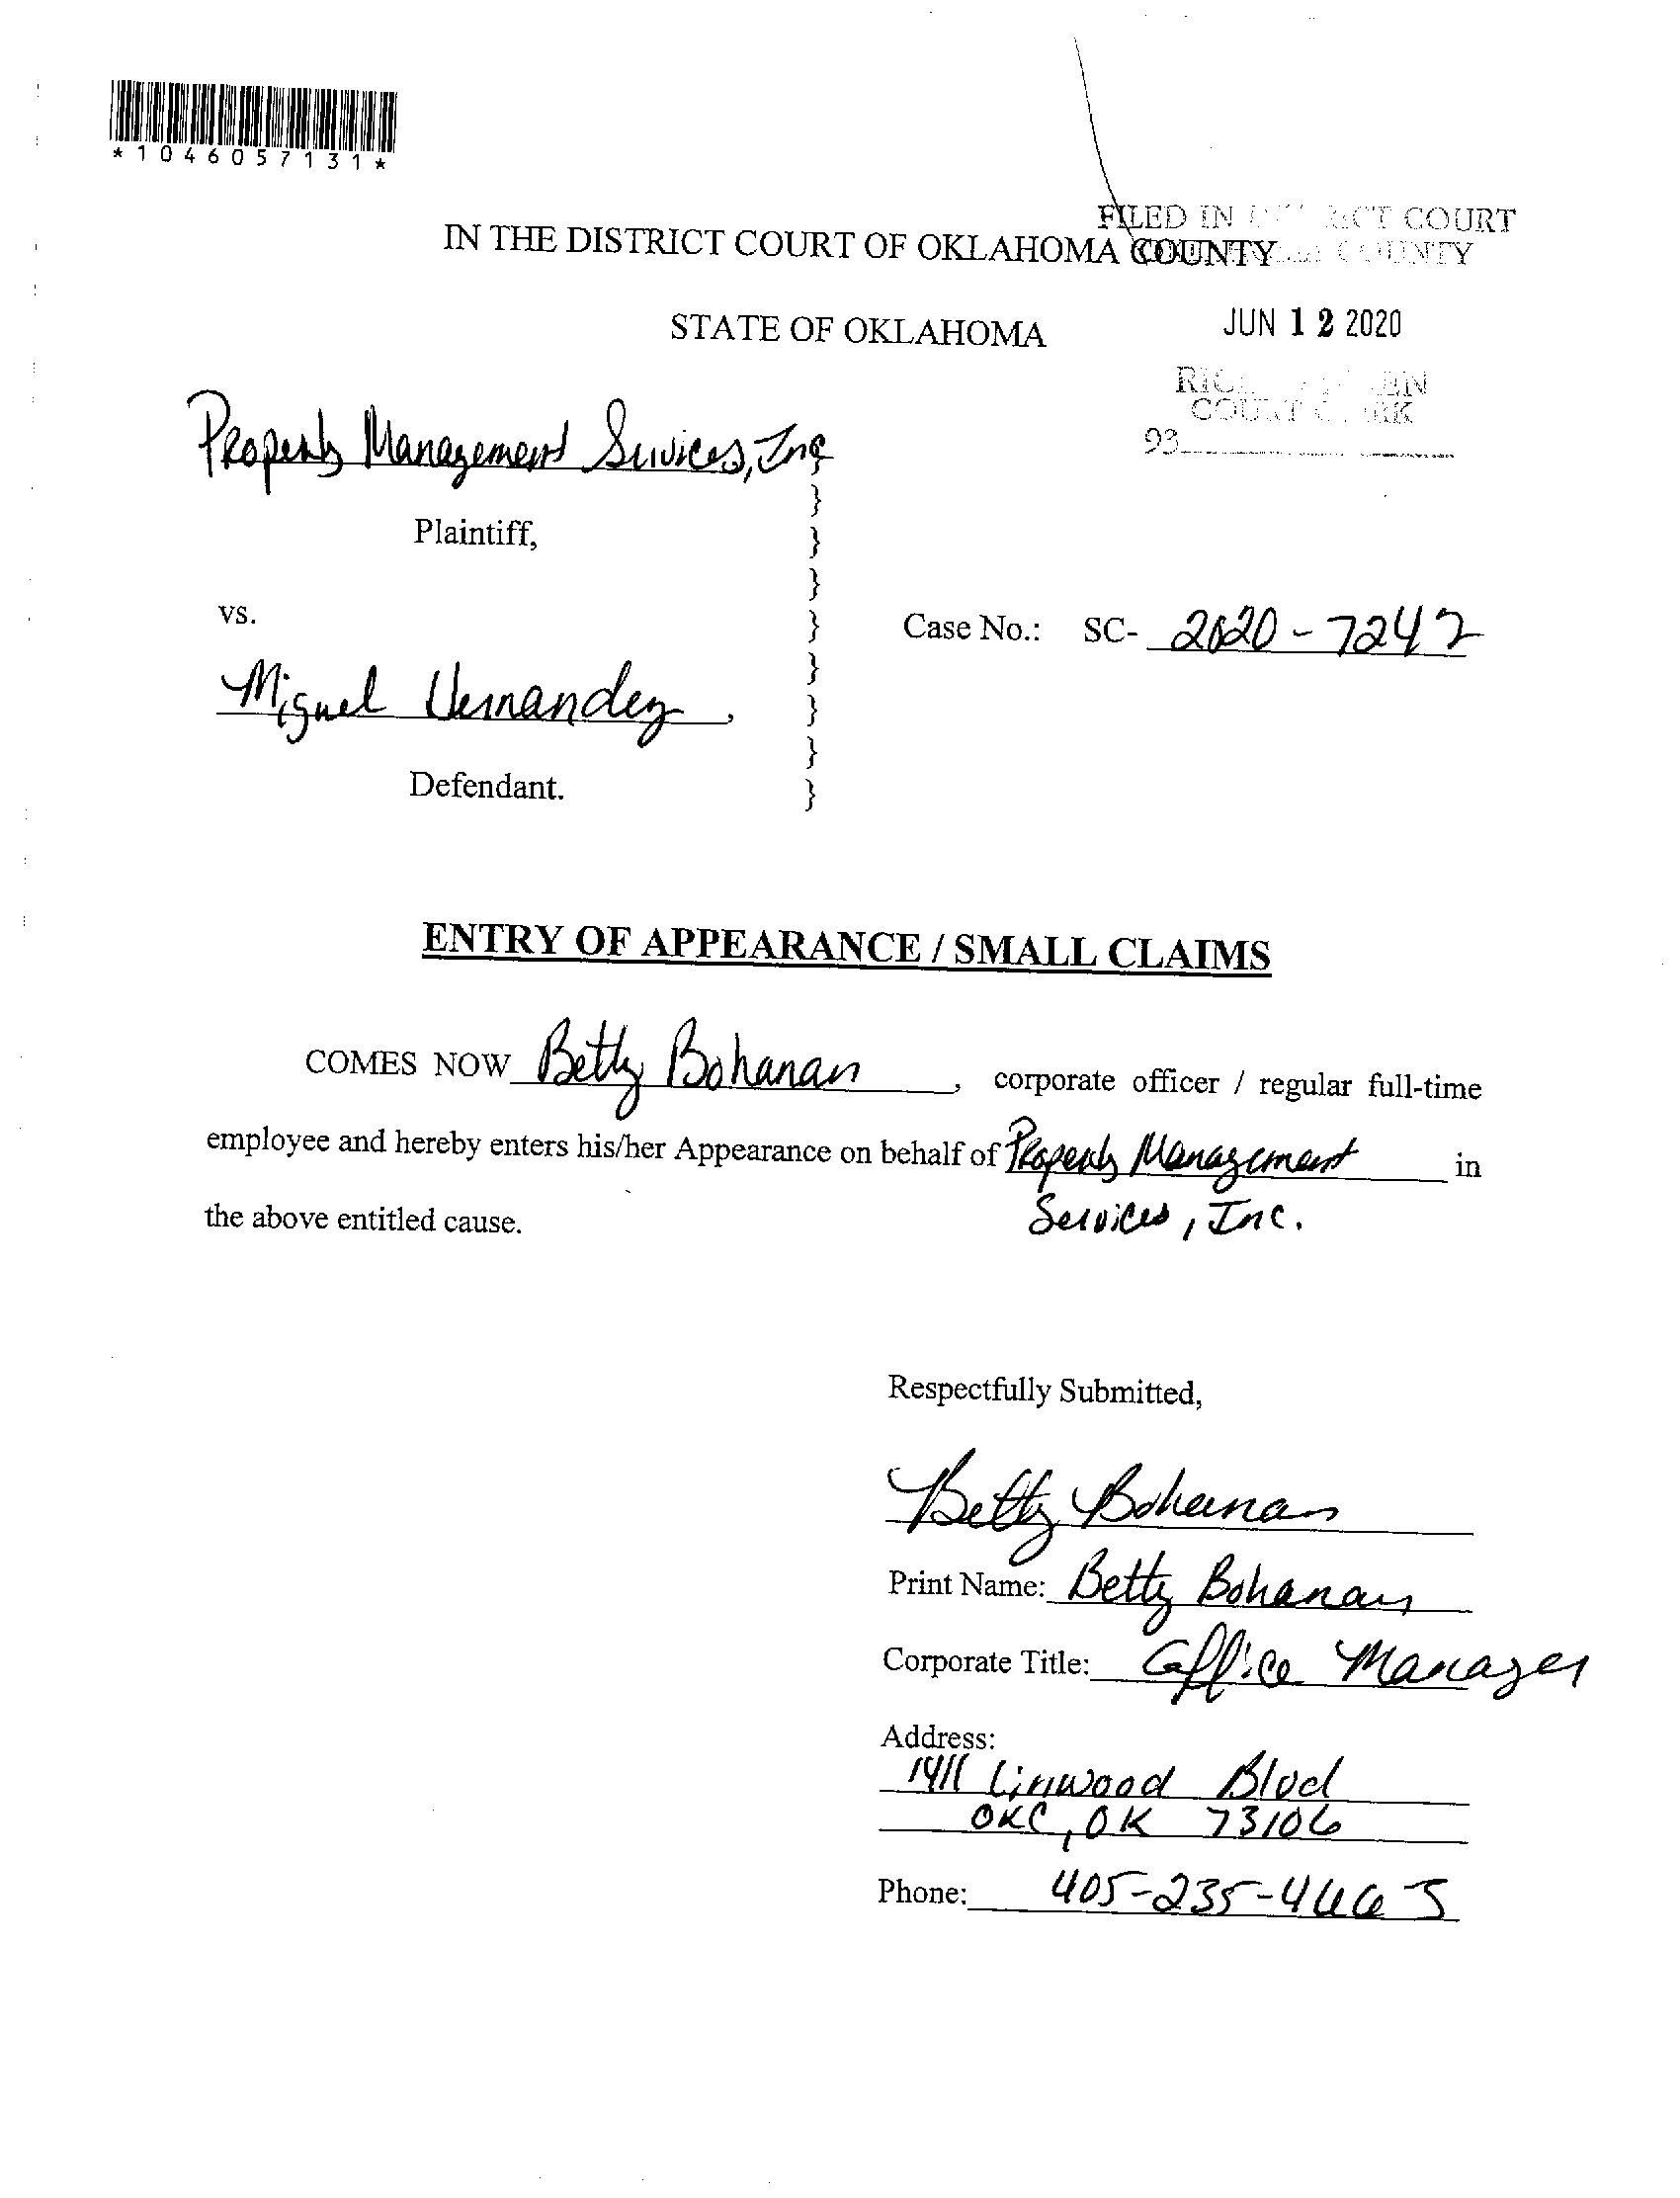 *1046057131*
FILED IN COURT
IN THE DISTRICT COURT OF OKLAHOMA COUNTY COUNTY
STATE OF OKLAHOMA
JUN 12 2020
COURT
93
Property Management Services, Inc
}
Plaintiff,
}
}
vs.
}
Case No.: SC- 2020-7242
}
Miguel Hernandez,
}
}
Defendant.
}
ENTRY OF APPEARANCE / SMALL CLAIMS
COMES NOW Betty Bohanan, corporate officer / regular full-time
employee and hereby enters his/her Appearance on behalf of Property Management in
the above entitled cause. Services, Inc.
Respectfully Submitted,
Betty Bohanan
Print Name: Betty Bohanan
Corporate Title: Office Manager
Address:
1411 Linwood Blvd
OKC, OK 73106
Phone: 405-235-4665